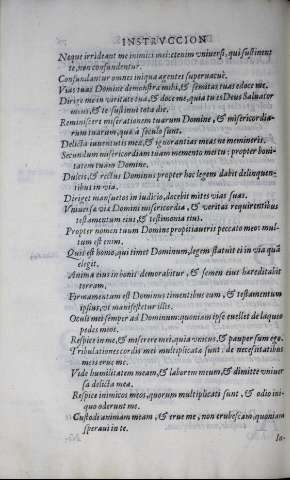 INSTRVCCION
Neque irrideant me inimici mei: etenim vniuersi, qui sustinent
te, non confundentur.
Confundantur omnes iniqua agentes superuacuè.
Vias tuas Domine demonstra mihi, & semitas tuas edoce me.
Dirige me in veritate tua, & doce me, quia tu es Deus Saluator
meus, & te sustinui tota die.
Reminiscere miserationem tuarum Domine, & misericordia-
rum tuarum, quæ à seculo sunt.
Delicta iuuentutis meæ, & ignorantias meas ne memineris.
Secundum misericordiam tuam memento mei tu: propter boni-
tatem tuam Domine.
Dulcis, & rectus Dominus propter hoc legem dabit delinquen-
tibus in via.
Diriget mansuetos in iudicio, docebit mites vias suas.
Vniuersæ viæ Domini misericordia, & veritas requirentibus
testamentum eius, & testimonia eius.
Propter nomen tuum Domine propitiaueris peccato meo: mul-
tum est enim.
Quis est homo, qui timet Dominum, legem statuit ei in via quã
elegit.
Anima eius in bonis demorabitur, & semen eius hæreditabit
terram.
Firmamentum est Dominus timentibus eum, & testamentum
ipsius, vt manifestetur illis.
Oculi mei semper ad Dominum: quoniam ipse euellet de laqueo
pedes meos.
Respice in me, & miserere mei, quia vnicus, & pauper sum ego.
Tribulationes cordis mei multiplicatæ sunt: de necessitatibus
meis erue me.
Vide humilitatem meam, & laborem meum, & dimitte vniuer
sa delicta mea.
Respice inimicos meos, quorum multiplicati sunt, & odio ini-
quo oderunt me.
Custodi animam meam, & erue me, non erubescam, quoniam
speraui in te.
In-